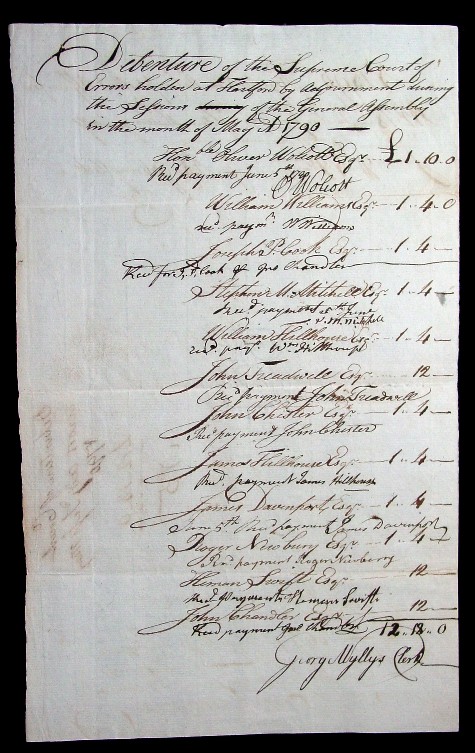 Debenture of the Supreme Court of
Errors holden at Hartford by adjournment during
the Sessions of the General Assembly
in the month of May AD 1790 —
Honble Oliver Wolcott Esqr £1..10..0
Recd payment June 5th 1790
O Wolcott
William Williams Esqr 1..4..0
recd paymt W Williams
Joseph P. Cook Esqr 1..4..
Recd for J. P. Cook Jno Chandler
Stephen M. Mitchell Esqr 1..4..
Recd payment 5th June
S. M. Mitchell
William Hillhouse Esqr 1..4..
recd payt. Wm Hillhouse
John Treadwell Esqr 12
Recd payment John Treadwell
John Chester Esqr 1..4..
Recd payment John Chester
James Hillhouse Esqr 1..4..
Recd payment James Hillhouse
James Davenport Esqr 1..4..
June 5th Recd payment James Davenport
Roger Newbury Esqr 1..4..
Recd payment Roger Newberry
Heman Swift Esqr 12
Recd payment Heman Swift
John Chandler Esqr 12
Recd payment Jno Chandler 12..18..0
George Wyllys Clerk